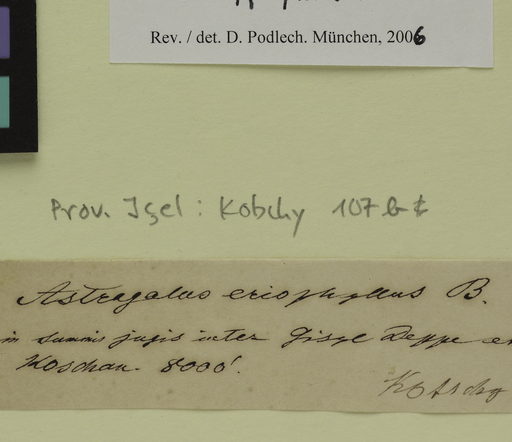 Rev. / det. D. Podlech. München, 2006
Prov. Isel: Kotschy 107
Astragalus eriophyllus B.
in summis jugis inter Gisge Deppe et
Koschan. 8000'.
Kotschy